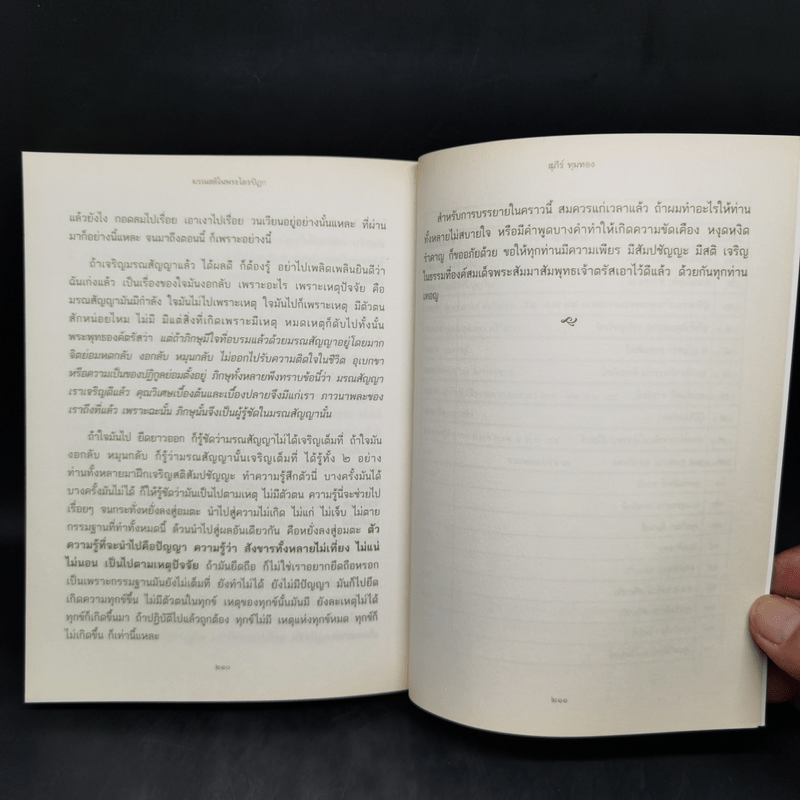 มรณสติในพระไตรปิฎก
แล้วยังไง กอดลมไปเรื่อย เอาเงาไปเรื่อย วนเวียนอยู่อย่างนั้นแหละ ที่ผ่าน
มาก็อย่างนี้แหละ จนมาถึงตอนนี้ ก็เพราะอย่างนี้
ถ้าเจริญมรณสัญญาแล้ว ได้ผลดี ก็ต้องรู้ อย่าไปเพลิดเพลินยินดีว่า
ฉันเก่งแล้ว เป็นเรื่องของใจมันงอกลับ เพราะอะไร เพราะเหตุปัจจัย คือ
มรณสัญญามันมีกำลัง ใจมันไม่ไปเพราะเหตุ ใจมันไปก็เพราะเหตุ มีตัวตน
สักหน่อยไหม ไม่มี มีแต่สิ่งที่เกิดเพราะมีเหตุ หมดเหตุก็ดับไปทั้งนั้น
พระพุทธองค์ตรัสว่า แต่ถ้าภิกษุมีใจที่อบรมแล้วด้วยมรณสัญญาอยู่โดยมาก
จิตย่อมหดกลับ งอกลับ หมุนกลับ ไม่ออกไปรับความติดใจในชีวิต อุเบกขา
หรือความเป็นของปฏิกูลย่อมตั้งอยู่ ภิกษุทั้งหลายพึงทราบข้อนี้ว่า มรณสัญญา
เราเจริญดีแล้ว คุณวิเศษเบื้องต้นและเบื้องปลายจึงมีแก่เรา ภาวนาพละของ
เราถึงที่แล้ว เพราะฉะนั้น ภิกษุนั้นจึงเป็นผู้รู้ชัดในมรณสัญญานั้น
ถ้าใจมันไป ยืดยาวออก ก็รู้ชัดว่ามรณสัญญาไม่ได้เจริญเต็มที่ ถ้าใจมัน
งอกลับ หมุนกลับ ก็รู้ว่ามรณสัญญานั้นเจริญเต็มที่ ได้รู้ทั้ง ๒ อย่าง
ท่านทั้งหลายมาฝึกเจริญสติสัมปชัญญะ ทำความรู้สึกตัวนี่ บางครั้งมันได้
บางครั้งมันไม่ได้ ก็ให้รู้ชัดว่ามันเป็นไปตามเหตุ ไม่มีตัวตน ความรู้นี่จะช่วยไป
เรื่อยๆ จนกระทั่งหยั่งลงสู่อมตะ นำไปสู่ความไม่เกิด ไม่แก่ ไม่เจ็บ ไม่ตาย
กรรมฐานที่ทำทั้งหมดนี้ ล้วนนำไปสู่ผลอันเดียวกัน คือหยั่งลงสู่อมตะ ตัว
ความรู้ที่จะนำไปคือปัญญา ความรู้ว่า สังขารทั้งหลายไม่เที่ยง ไม่แน่
ไม่นอน เป็นไปตามเหตุปัจจัย ถ้ามันยึดถือ ก็ไม่ใช่เราอยากยึดถือหรอก
เป็นเพราะกรรมฐานมันยังไม่เต็มที่ ยังทำไม่ได้ ยังไม่มีปัญญา มันก็ไปยึด
เกิดความทุกข์ขึ้น ไม่มีตัวตนในทุกข์ เหตุของทุกข์นั้นมันมี ยังละเหตุไม่ได้
ทุกข์ก็เกิดขึ้นมา ถ้าปฏิบัติไปแล้วถูกต้อง ทุกข์ไม่มี เหตุแห่งทุกข์หมด ทุกข์ก็
ไม่เกิดขึ้น ก็เท่านี้แหละ
๒๑๐
สุภีร์ ทุมทอง
สำหรับการบรรยายในคราวนี้ สมควรแก่เวลาแล้ว ถ้าผมทำอะไรให้ท่าน
ทั้งหลายไม่สบายใจ หรือมีคำพูดบางคำทำให้เกิดความขัดเคือง หงุดหงิด
รำคาญ ก็ขออภัยด้วย ขอให้ทุกท่านมีความเพียร มีสัมปชัญญะ มีสติ เจริญ
ในธรรมที่องค์สมเด็จพระสัมมาสัมพุทธเจ้าตรัสเอาไว้ดีแล้ว ด้วยกันทุกท่าน
เทอญ
๒๑๑